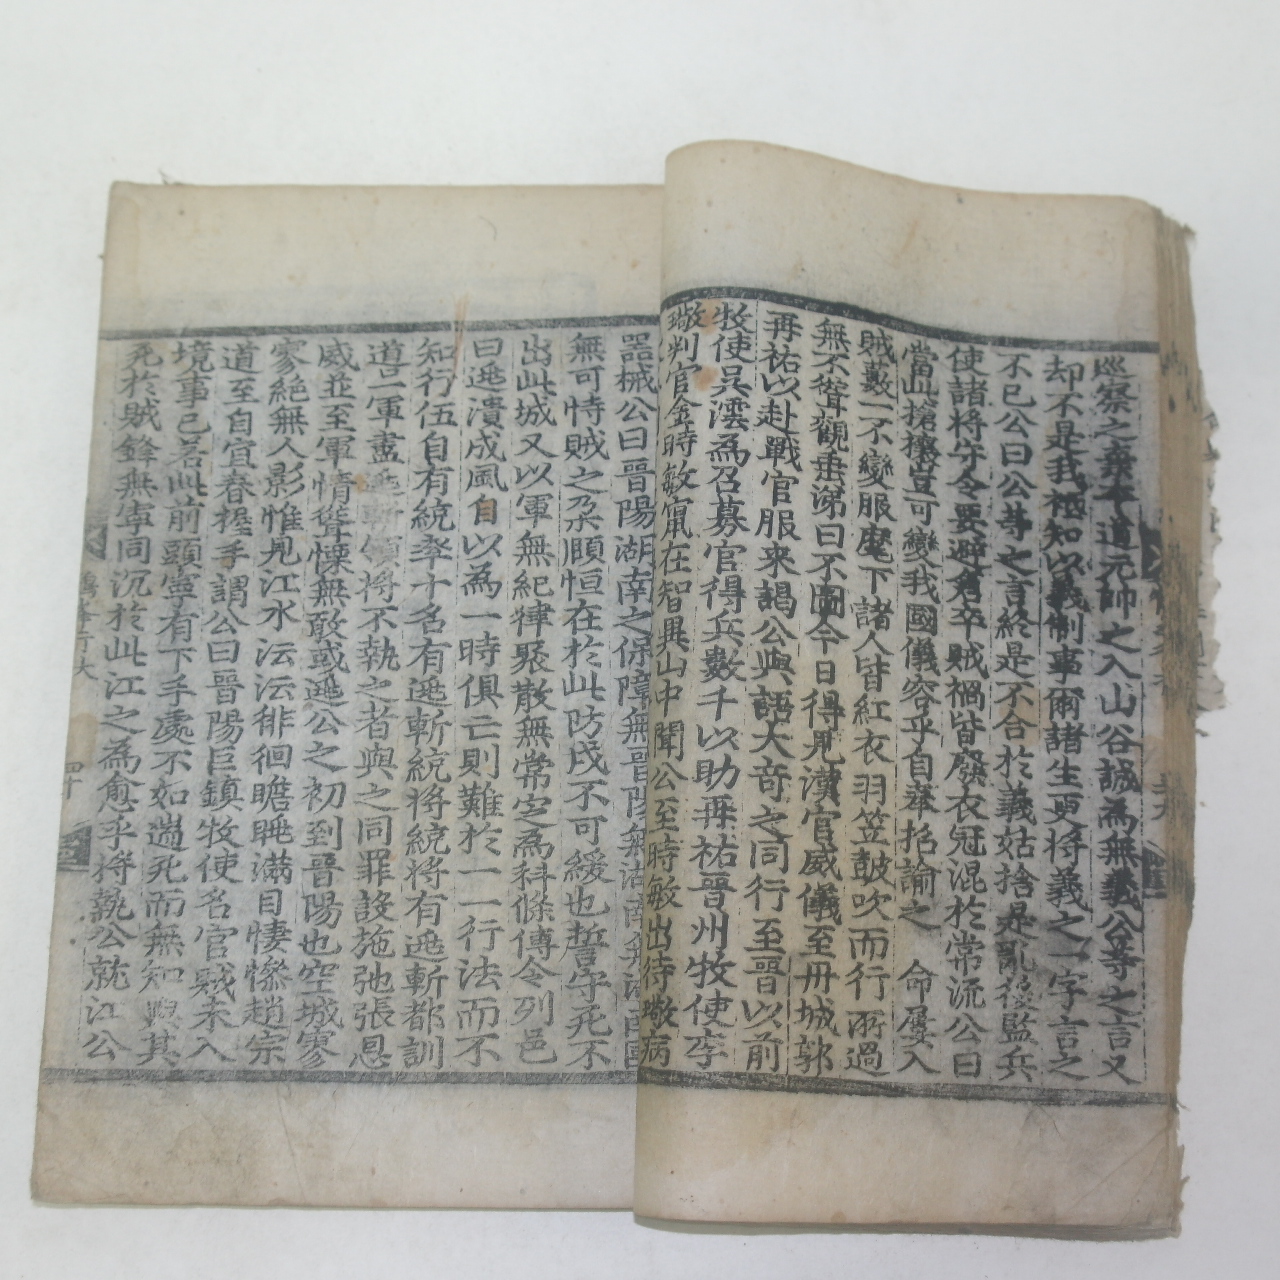 巡察之棄本道元帥之入山谷誠為無義公等之言又
却不是我極知以義制事爾諸生更將義之一字言之
不已公曰公等之言終是不合於義姑捨是亂後監兵
使諸將守令要避倉卒賊禍皆廢衣冠混於常流公曰
當此搶攘豈可變我國儀容乎自奉招諭之 命屢入
賊藪一不變服麾下諸人皆紅衣羽笠鼓吹而行所過
無不聳觀垂涕曰不圖今日得見漢官威儀至丹城郭
再祐以赴戰官服來謁公與語大奇之同行至晉以前
牧使吳澐為召募官得兵數千以助再祐晉州牧使李
璥判官金時敏竄在智異山中聞公至時敏出待璥病
器械公曰晉陽湖南之保障無晉陽無湖南無湖南國
無可恃賊之朶頤恒在於此防戍不可緩也誓守死不
出此城又以軍無紀律聚散無常定為科條傳令列邑
曰逃潰成風自以為一時俱亡則難於一一行法而不
知行伍自有統率十名有逃斬統將統將有逃斬都訓
道一軍盡逃斬領將不執之者與之同罪設施弛張恩
威並至軍情聳慄無敢或逃公之初到晉陽也空城寥
寥絶無人影惟見江水沄沄徘徊瞻眺滿目悽慘趙宗
道至自宜春握手謂公曰晉陽巨鎮牧使名官賊未入
境事已若此前頭寧有下手處不如遄死而無知與其
死於賊鋒無寧同沉於此江之為愈乎將執公就江公
四十